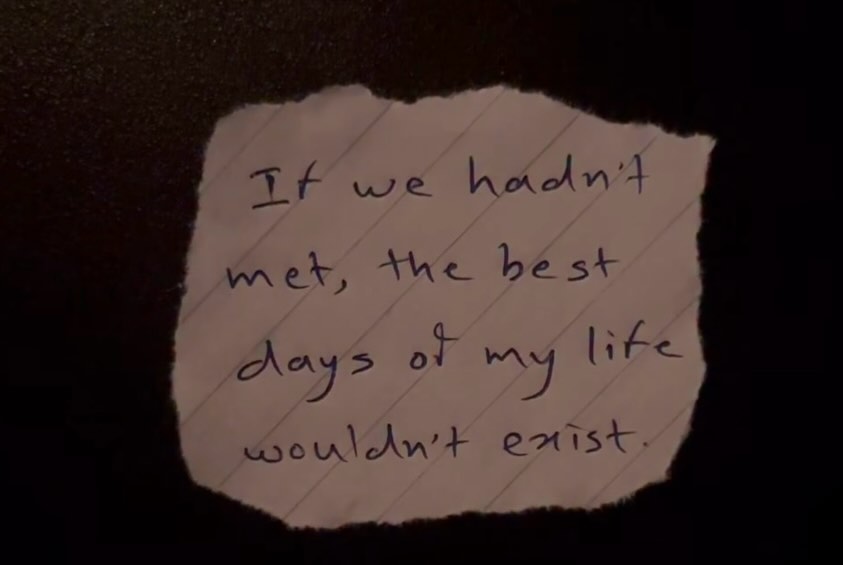 If we hadn't
met, the best
days of my life
wouldn't exist.